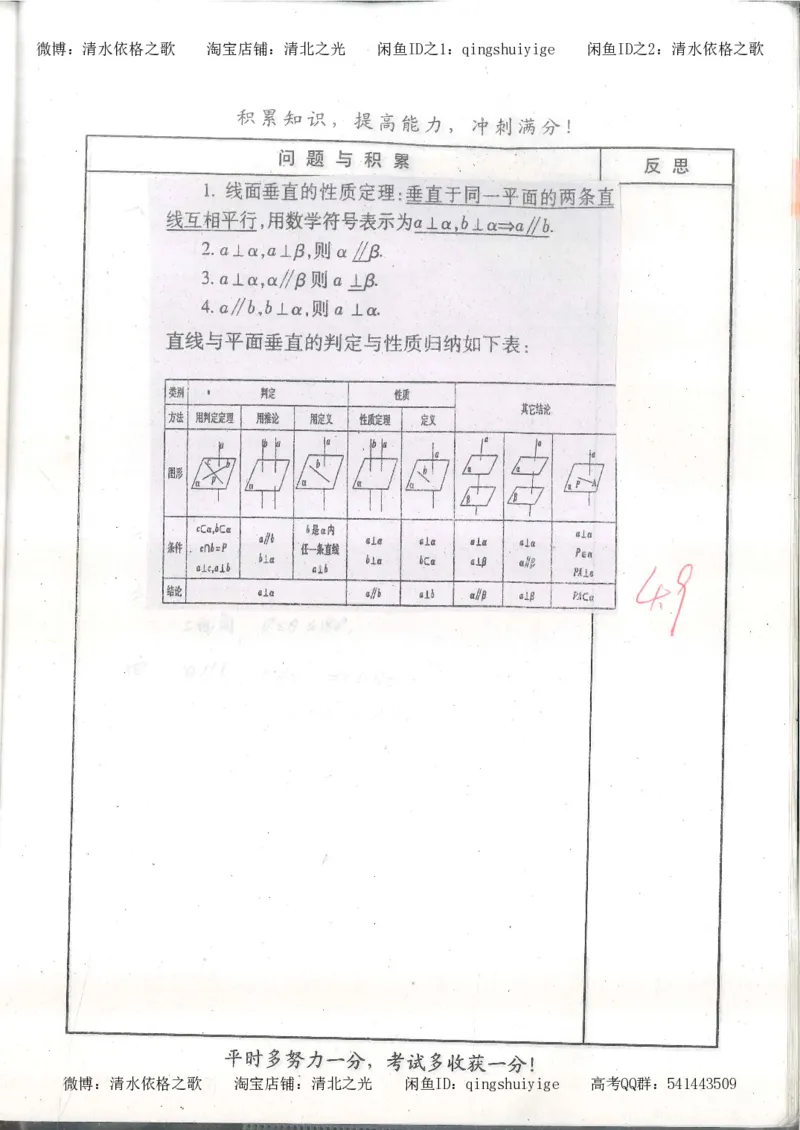 微博：清水依格之歌 淘宝店铺：清北之光 闲鱼ID之1：qingshuiyige 闲鱼ID之2：清水依格之歌
积累知识，提高能力，冲刺满分！
问题与积累 反思
1. 线面垂直的性质定理：垂直于同一平面的两条直
线互相平行，用数学符号表示为a⊥α,b⊥α⇒a∥b.
2. a⊥α,a⊥β,则 α∥β.
3. a⊥α,α∥β 则 a ⊥β.
4. a∥b,b⊥α,则 a ⊥α.
直线与平面垂直的判定与性质归纳如下表：
类别 判定 性质 其它结论
方法 用判定定理 用推论 用定义 性质定理 定义
图形
条件 c⊂α,b⊂α c∩b=P a⊥c,a⊥b a∥b b⊥α b是α内 任一条直线 a⊥b a⊥α b⊥α a⊥α b⊂α a⊥α a⊥β a⊥α α∥β a⊥α P∈α PA⊥a
结论 a⊥α a∥b a⊥b α∥β a⊥β PA⊂α
49
平时多努力一分，考试多收获一分！
微博：清水依格之歌 淘宝店铺：清北之光 闲鱼ID：qingshuiyige 高考QQ群：541443509